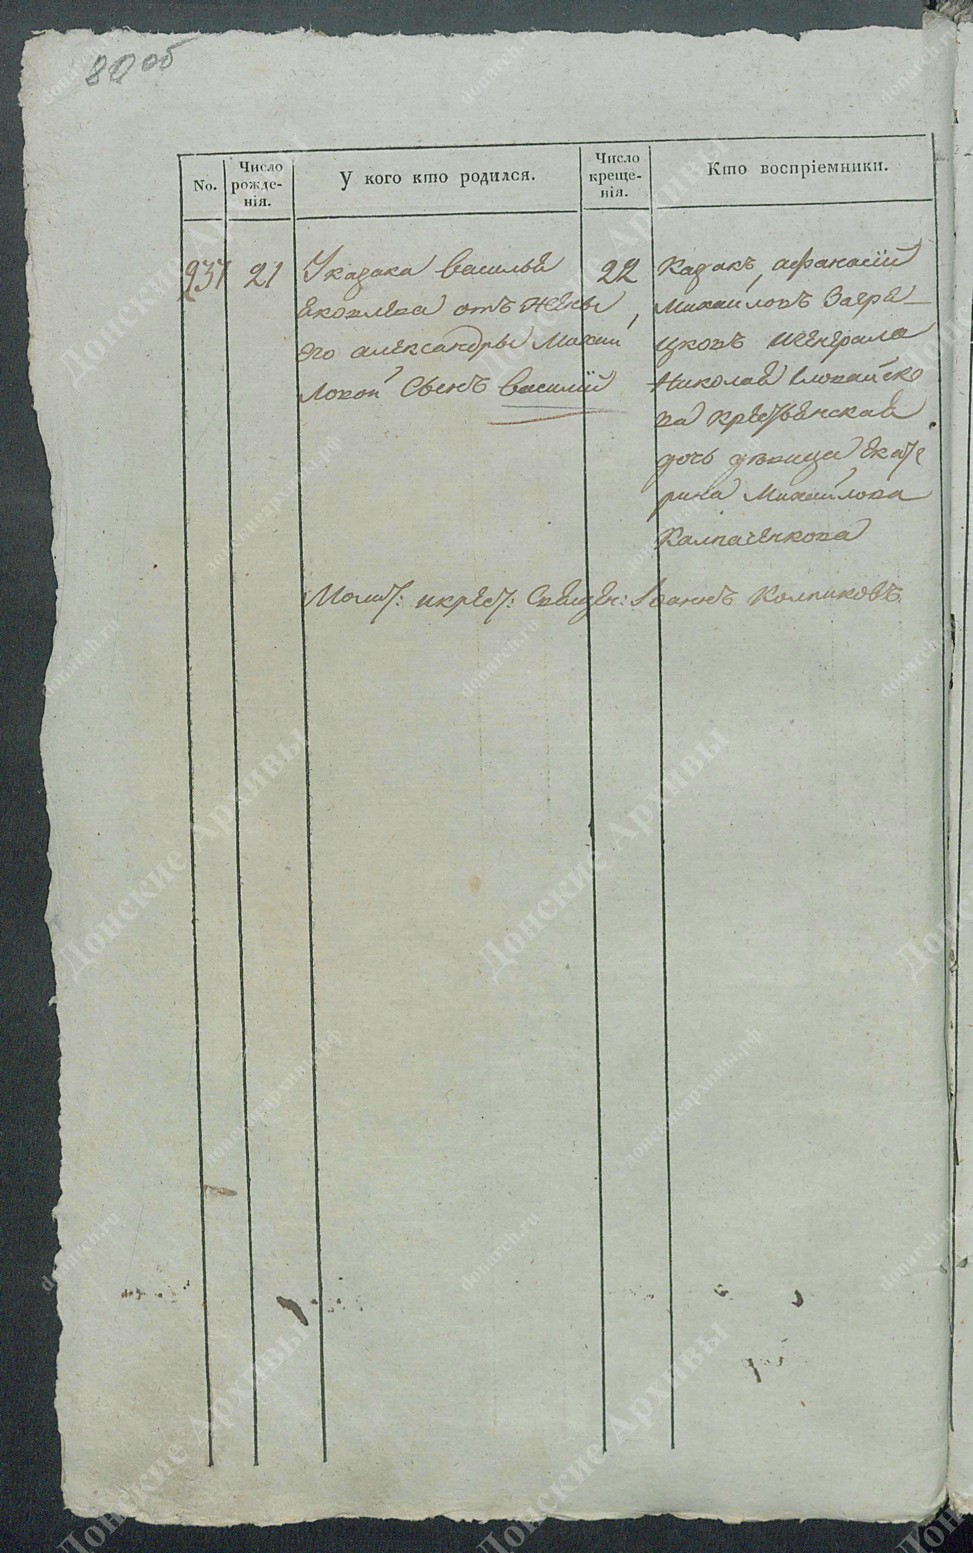 80 об
No.
Число рожде-нія.
У кого кто родился.
Число креще-нія.
Кто воспріемники.
237
21
У казака Василья
Яковлева отъ жены
его александры Михай
ловой Сынъ Василій
22
Казакъ афанасій
Михайловъ
Генерала
Николая Иловайско
ва крестьянская
дочь девица Екате
рина Михайлова
Калпаченкова
Молит: и крест: Священ: Іоаннъ Колпиковъ
Донские Архивы
donarch.ru
донскиеархивы.рф